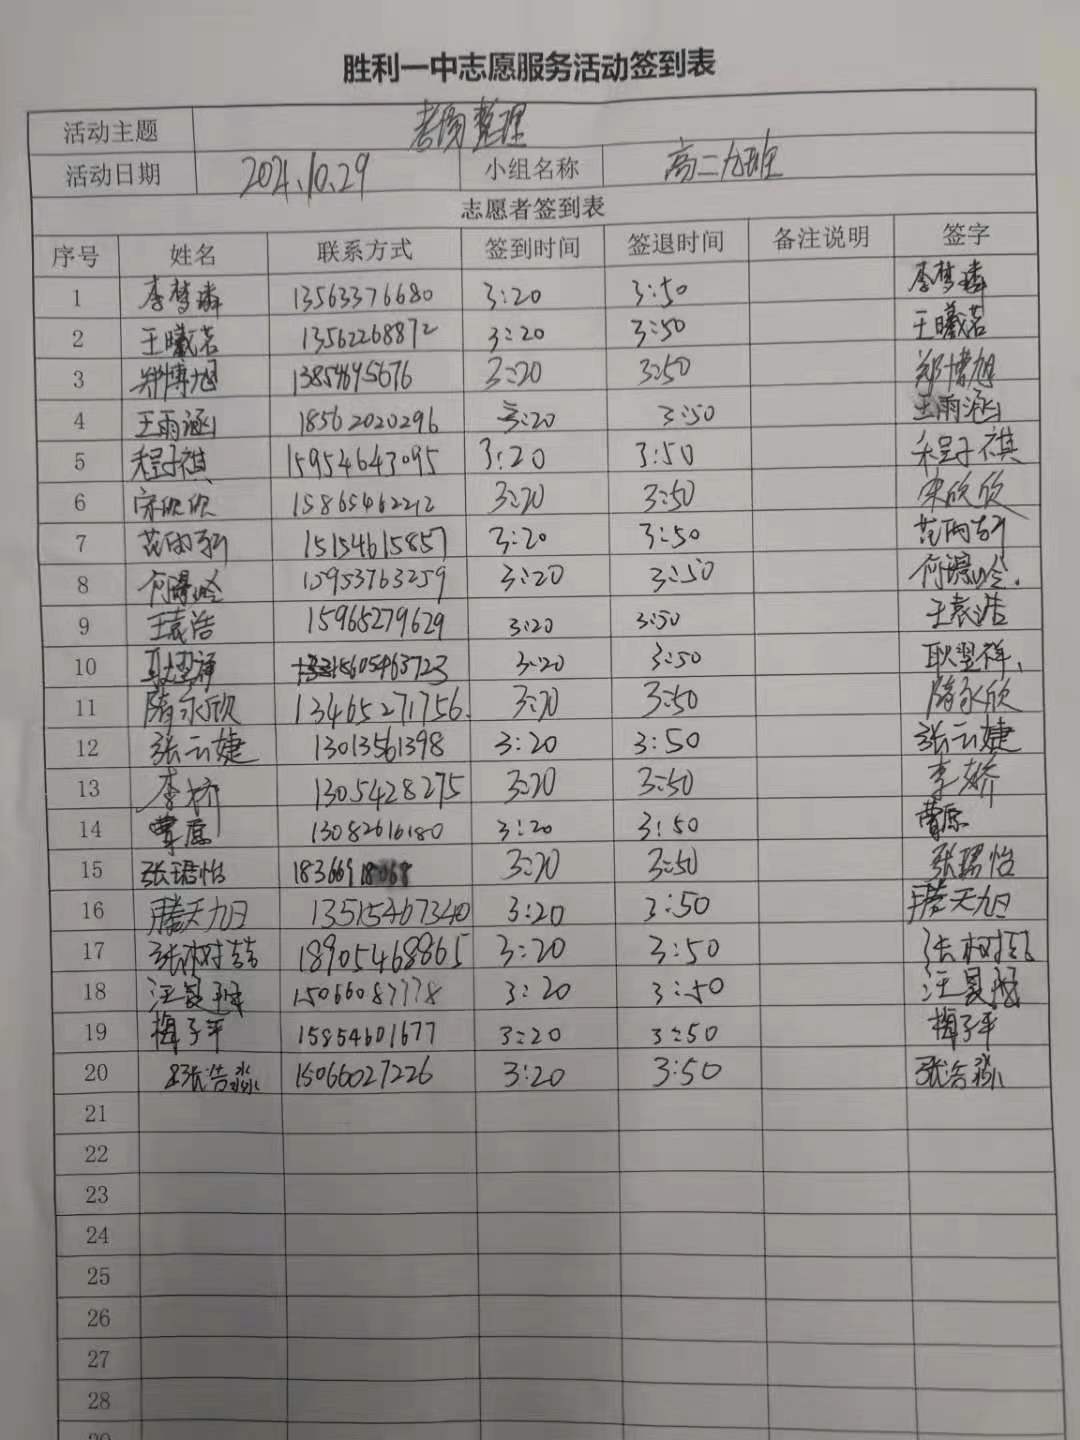 胜利一中志愿服务活动签到表
活动主题 考场整理
活动日期 2021.10.29 小组名称 高二九班
志愿者签到表
序号 姓名 联系方式 签到时间 签退时间 备注说明 签字
1 李梦璘 13563376680 3:20 3:50 李梦璘
2 王曦若 13562268872 3:20 3:50 王曦若
3 郑博旭 13854695676 3:20 3:50 郑博旭
4 王雨涵 18562020296 3:20 3:50 王雨涵
5 程子祺 15954643095 3:20 3:50 程子祺
6 宋欣欣 15865462212 3:20 3:50 宋欣欣
7 15154615857 3:20 3:50
8 15953763259 3:20 3:50
9 王袁浩 15965279629 3:20 3:50 王袁浩
10 耿翌祥 15605463723 3:20 3:50 耿翌祥
11 隋永欣 13465271756. 3:20 3:50 隋永欣
12 张云婕 13013561398 3:20 3:50 张云婕
13 李娇 1305428275 3:20 3:50 李娇
14 曹原 13082616180 3:20 3:50 曹原
15 张珺怡 3:20 3:50 张珺怡
16 滕天旭 13515467340 3:20 3:50 滕天旭
17 张树喆 18905468865 3:20 3:50 张树喆
18 15066087778 3:20 3:50
19 梅子平 15854601677 3:20 3:50 梅子平
20 张浩淼 15066027226 3:20 3:50 张浩淼
21
22
23
24
25
26
27
28